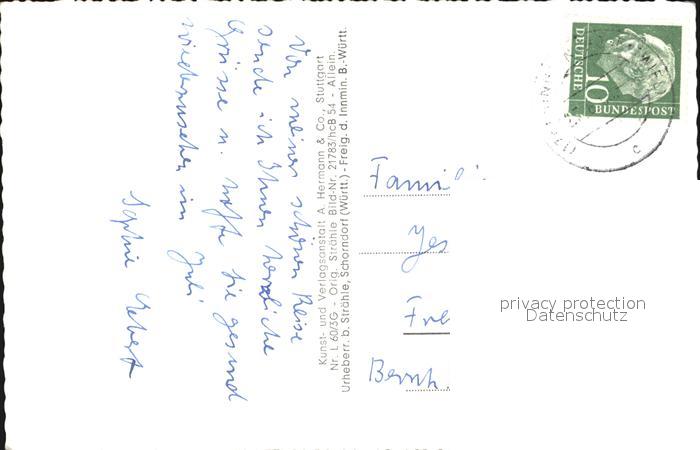 Von meiner schönen Reise
sende ich Ihnen herzliche
Grüsse u. hoffe Sie gesund
wiederzusehen im Juli
Sophie
Kunst- und Verlagsanstalt A. Hermann & Co., Stuttgart
Nr. L 60/3G - Orig. Strähle Bild-Nr. 21783/hcB 54 - Allein.
Urheberr. b. Strähle, Schorndorf (Württ.) - Freig. d. Innmin. B.-Württ.
DEUTSCHE
10
BUNDESPOST
Famil
Fre
privacy protection
Datenschutz